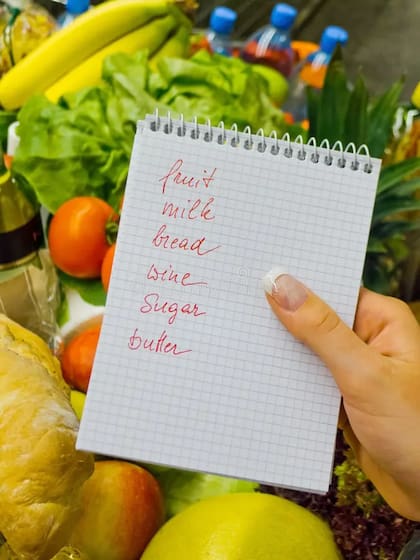 fruit
milk
bread
wine
Sugar
butter